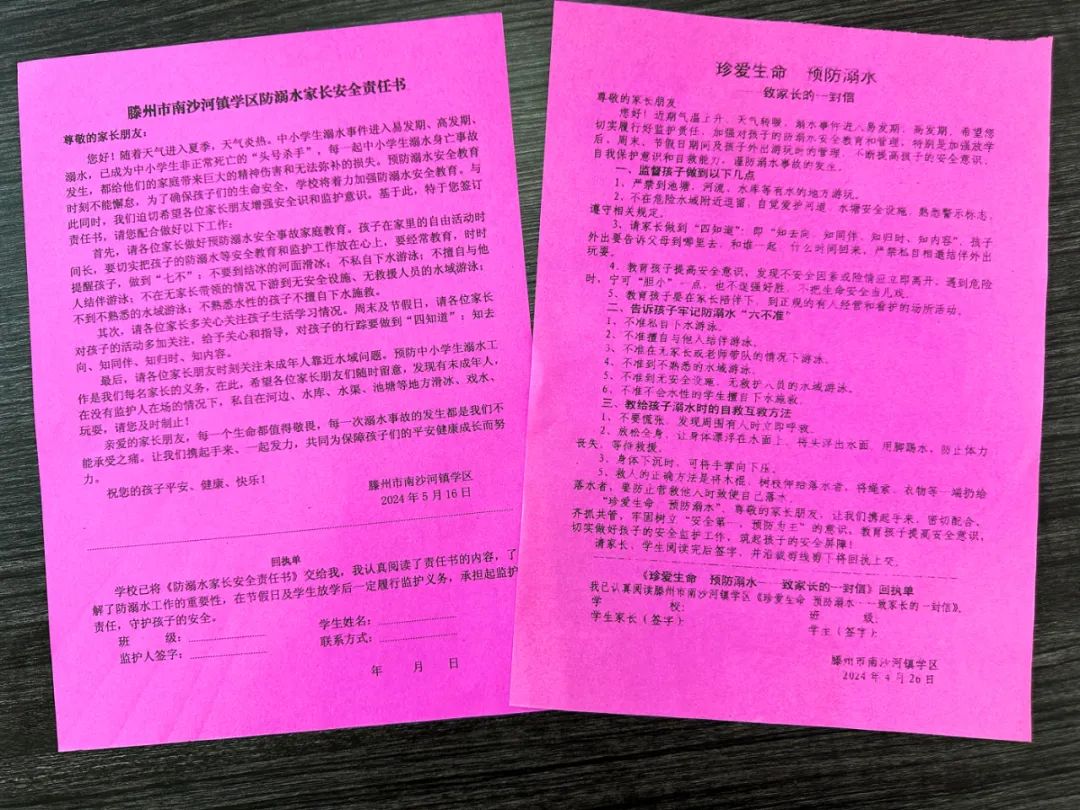 滕州市南沙河镇学区防溺水家长安全责任书
尊敬的家长朋友：
您好！随着天气进入夏季，天气炎热。中小学生溺水事件进入易发期、高发期、
溺水，已成为中小学生非正常死亡的“头号杀手”，每一起中小学生溺水身亡事故
发生，都给他们的家庭带来巨大的精神伤害和无法弥补的损失。预防溺水安全教育
时刻不能懈怠，为了确保孩子们的生命安全，学校将着力加强防溺水安全教育。与
此同时，我们迫切希望各位家长朋友增强安全识和监护意识。基于此，特于您签订
责任书，请您配合做好以下工作：
首先，请各位家长做好预防溺水安全事故家庭教育。孩子在家里的自由活动时
间长，要切实把孩子的防溺水等安全教育和监护工作放在心上，要经常教育，时时
提醒孩子，做到“七不”：不要到结冰的河面滑冰；不私自下水游泳；不擅自与他
人结伴游泳；不在无家长带领的情况下游到无安全设施、无救援人员的水域游泳；
不到不熟悉的水域游泳；不熟悉水性的孩子不擅自下水施救。
其次，请各位家长多关心关注孩子生活学习情况。周末及节假日，请各位家长
对孩子的活动多加关注，给予关心和指导，对孩子的行踪要做到“四知道”：知去
向、知同伴、知归时、知内容。
最后，请各位家长朋友时刻关注未成年人靠近水域问题。预防中小学生溺水工
作是我们每名家长的义务，在此，希望各位家长朋友们随时留意，发现有未成年人，
在没有监护人在场的情况下，私自在河边、水库、水渠、池塘等地方滑冰、戏水、
玩耍，请您及时制止！
亲爱的家长朋友，每一个生命都值得敬畏，每一次溺水事故的发生都是我们不
能承受之痛。让我们携起手来、一起发力，共同为保障孩子们的平安健康成长而努
力。
祝您的孩子平安、健康、快乐！
滕州市南沙河镇学区
2024年5月16日
回执单
学校已将《防溺水家长安全责任书》交给我，我认真阅读了责任书的内容，了
解了防溺水工作的重要性，在节假日及学生放学后一定履行监护义务，承担起监护
责任，守护孩子的安全。
班 级： 学生姓名：
监护人签字： 联系方式：
年 月 日
珍爱生命 预防溺水
——致家长的一封信
尊敬的家长朋友
您好！近期气温上升、天气转暖，溺水事件进入易发期、高发期，希望您
切实履行好监护责任，加强对孩子的防溺水安全教育和管理，特别是加强放学
后、周末、节假日期间及孩子外出游玩时的管理，不断提高孩子的安全意识、
自我保护意识和自救能力，谨防溺水事故的发生。
一、监督孩子做到以下几点
1、严禁到池塘，河流，水库等有水的地方游玩。
2、不在危险水域附近逗留，自觉爱护河道，水塘安全设施，熟悉警示标志，
遵守相关规定。
3、请家长做到“四知道”：即“知去向，知同伴、知归时、知内容”，孩子
外出要告诉父母到哪里去，和谁一起，什么时间回来，严禁私自相邀结伴外出
玩耍。
4、教育孩子提高安全意识，发现不安全因素或险情应立即离开，遇到危险
时，宁可“胆小”一点，也不逞强好胜，不把生命安全当儿戏。
5、教育孩子要在家长陪伴下，到正规的有人经营和看护的场所活动。
二、告诉孩子牢记防溺水“六不准”
1、不准私自下水游泳。
2、不准擅自与他人结伴游泳。
3、不准在无家长或老师带队的情况下游泳。
4、不准到不熟悉的水域游泳。
5、不准到无安全设施、无救护人员的水域游泳。
6、不准不会水性的学生擅自下水施救。
三、教给孩子溺水时的自救互救方法
1、不要慌张，发现周围有人时立即呼救。
2、放松全身，让身体漂浮在水面上，将头浮出水面，用脚踢水，防止体力
丧失，等待救援。
3、身体下沉时，可将手掌向下压。
5、救人的正确方法是将木棍，树枝伸给落水者，将绳索、衣物等一端扔给
落水者，要防止营救他人时致使自己落水。
“珍爱生命、预防溺水”，尊敬的家长朋友，让我们携起手来，密切配合、
齐抓共管，牢固树立“安全第一、预防为主”的意识，教育孩子提高安全意识，
切实做好孩子的安全监护工作，筑起孩子的安全屏障！
请家长、学生阅读完后签字，并沿裁剪线剪下将回执上交。
《珍爱生命 预防溺水——致家长的一封信》回执单
我已认真阅读滕州市南沙河镇学区《珍爱生命 预防溺水——致家长的一封信》。
学 校： 班 级：
学生家长（签字）： 学生（签字）：
滕州市南沙河镇学区
2024年4月26日